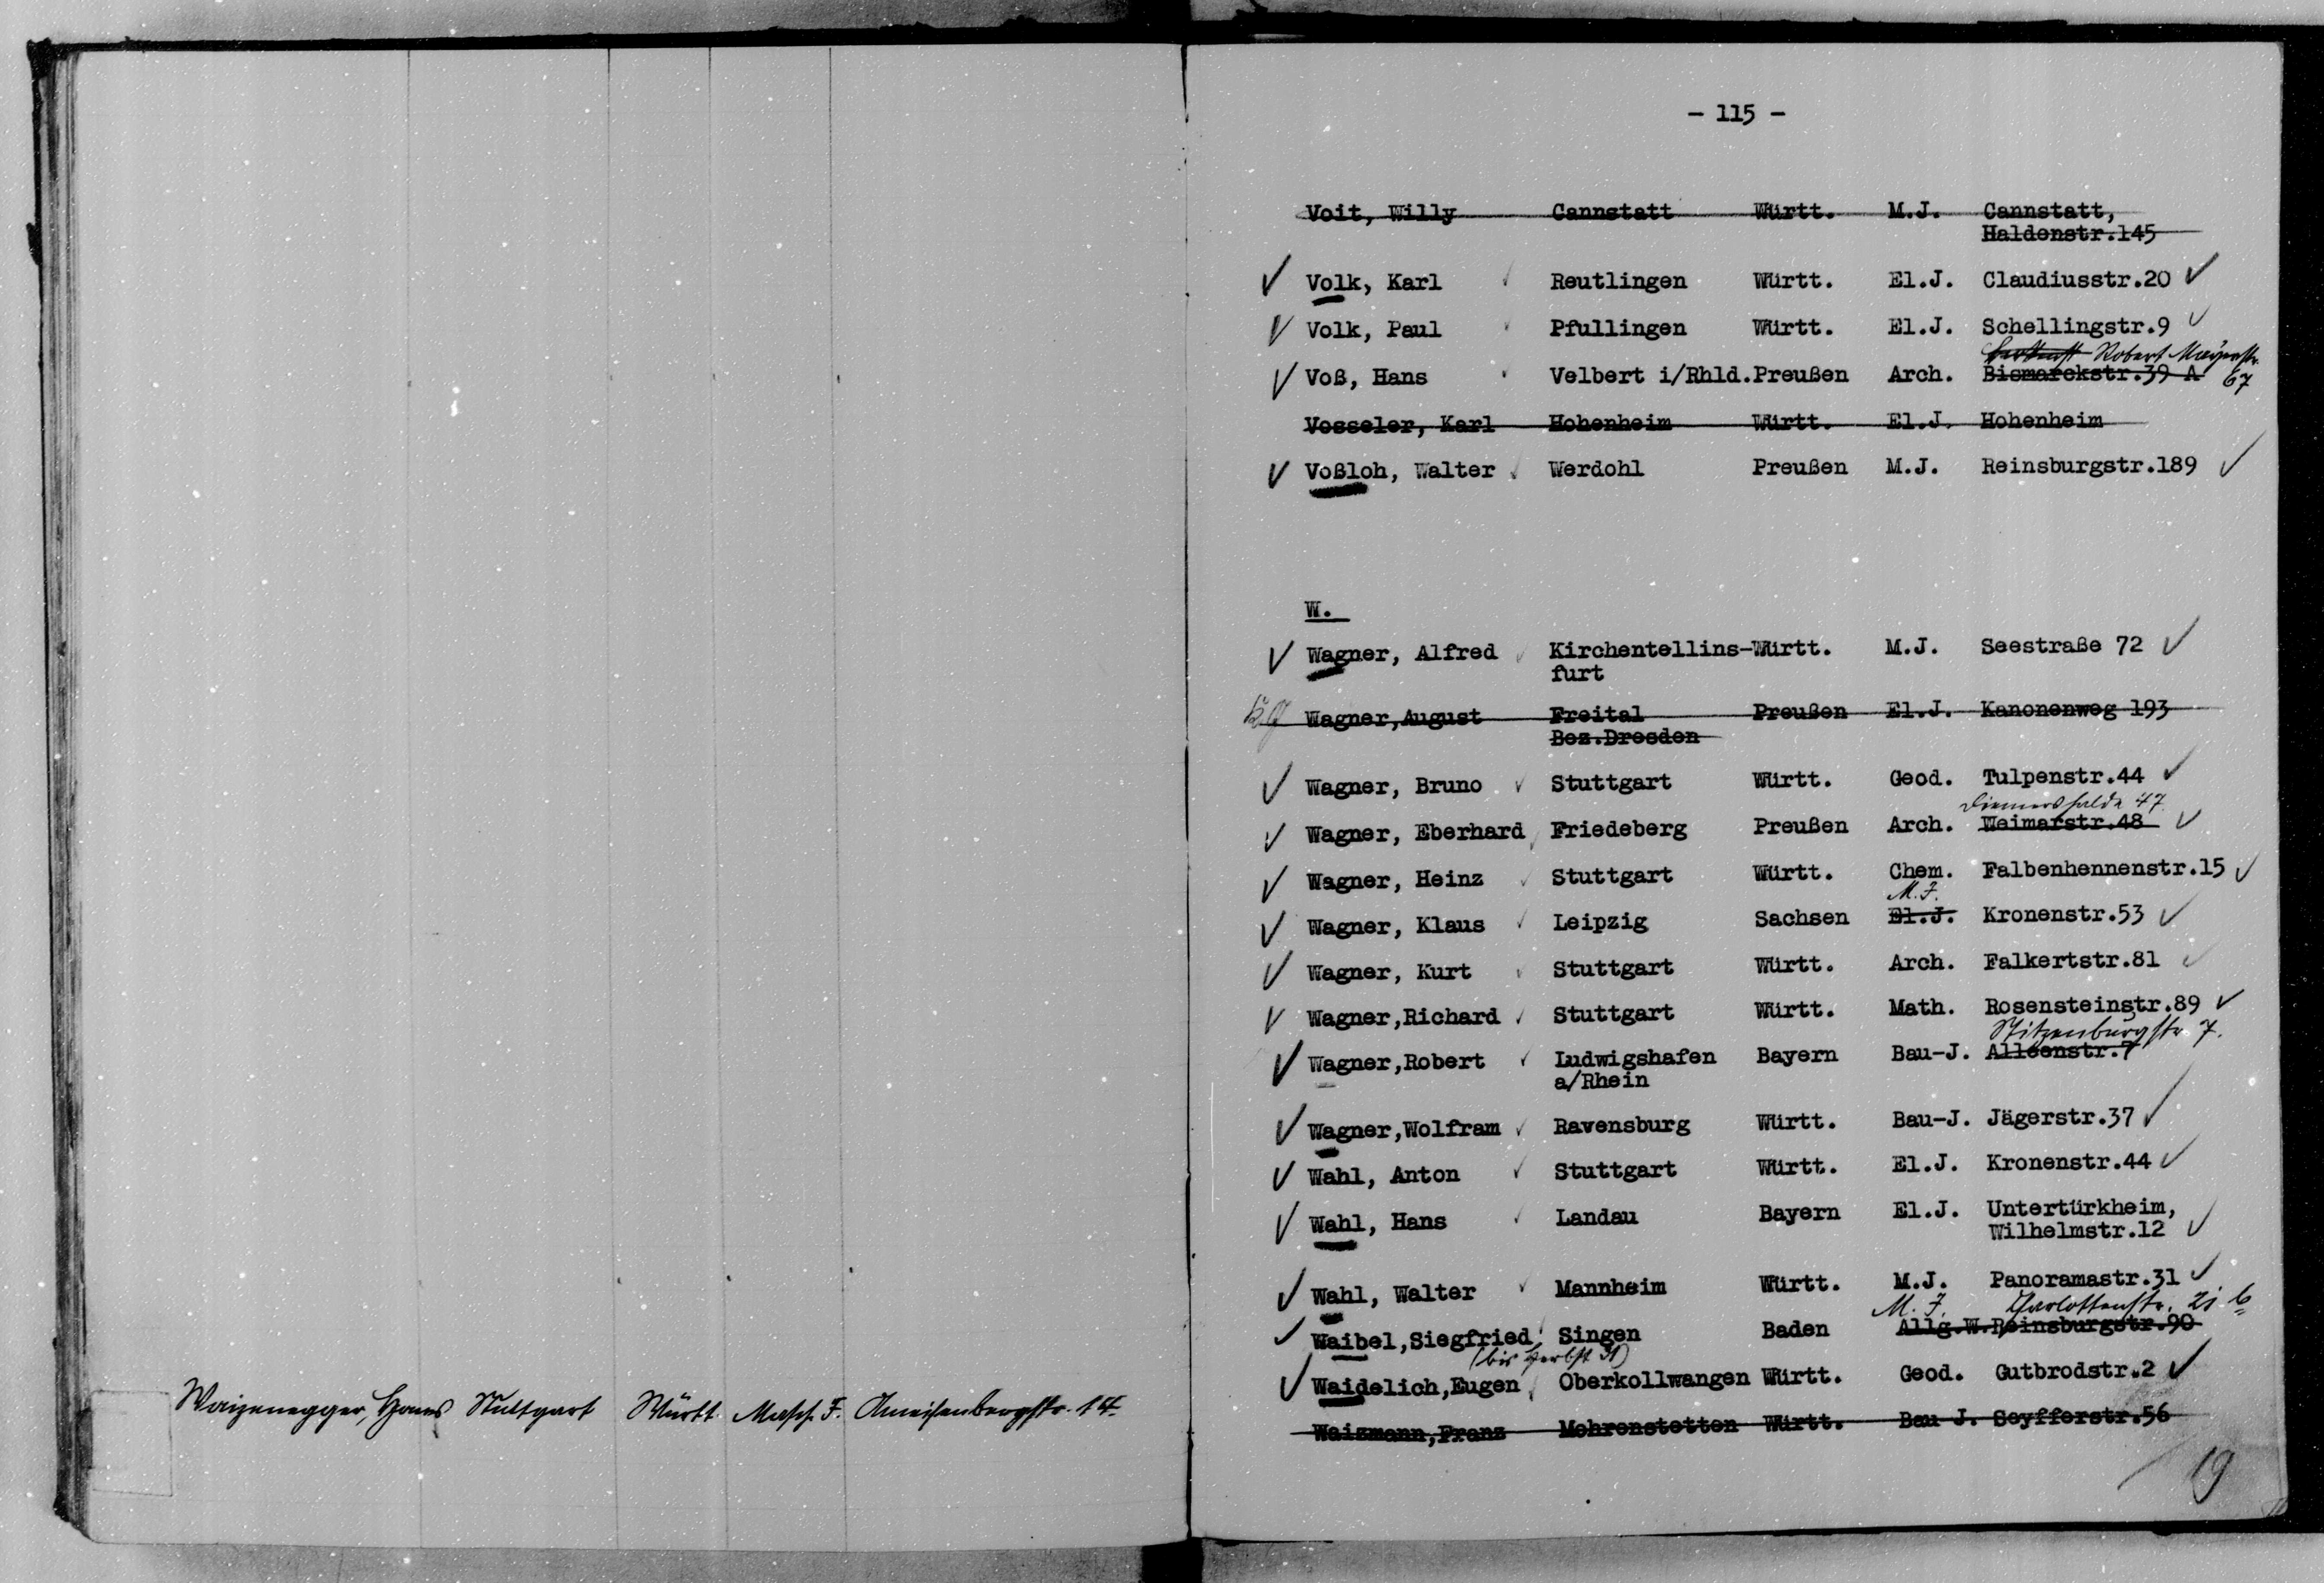 Waizenegger, Hans Stuttgart Württ. Masch. I. Ameisenbergstr. 14
- 115 -
Voit, Willy Cannstatt Württ. M.J. Cannstatt,
Haldenstr.145
Volk, Karl Reutlingen Württ. El.J. Claudiusstr.20
Volk, Paul Pfullingen Württ. El.J. Schellingstr.9
Robert Mayerstr. 67
Voß, Hans Velbert i/Rhld. Preußen Arch. Bismarckstr.39 A
Vosseler, Karl Hohenheim Württ. El.J. Hohenheim
Voßloh, Walter Werdohl Preußen M.J. Reinsburgstr.189
W.
Wagner, Alfred Kirchentellins- Württ. M.J. Seestraße 72
furt
Wagner,August Freital Preußen El.J. Kanonenweg 193
Bez.Dresden
Wagner, Bruno Stuttgart Württ. Geod. Tulpenstr.44
Diemershalde 47
Wagner, Eberhard Friedeberg Preußen Arch. Weimarstr.48
Wagner, Heinz Stuttgart Württ. Chem. Falbenhennenstr.15
M.J.
Wagner, Klaus Leipzig Sachsen El.J. Kronenstr.53
Wagner, Kurt Stuttgart Württ. Arch. Falkertstr.81
Wagner,Richard Stuttgart Württ. Math. Rosensteinstr.89
Wagner,Robert Ludwigshafen Bayern Bau-J. Alleenstr.7
a/Rhein
Wagner,Wolfram Ravensburg Württ. Bau-J. Jägerstr.37
Wahl, Anton Stuttgart Württ. El.J. Kronenstr.44
Wahl, Hans Landau Bayern El.J. Untertürkheim,
Wilhelmstr.12
Wahl, Walter Mannheim Württ. M.J. Panoramastr.31
M.J. Charlottenstr. 21 b
Waibel,Siegfried Singen Baden Allg.W. Reinsburgstr.90
(bis Herbst 31)
Waidelich,Eugen Oberkollwangen Württ. Geod. Gutbrodstr.2
Waizmann,Franz Mehrenstetten Württ. Bau J. Seyfferstr.56
19